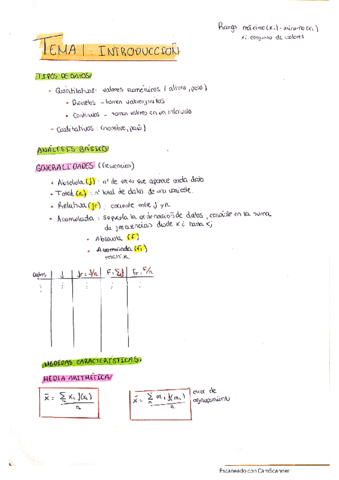 Rango: máximo(xi) - mínimo(xi)
xi: conjunto de valores
TEMA 1: INTRODUCCIÓN
TIPOS DE DATOS
- Cuantitativos: valores numéricos (altura, peso)
• Discretos - toman valores
• Continuos - toman valores en un intervalo
- Cualitativos (nombre, país)
ANÁLISIS BÁSICO
GENERALIDADES (frecuencias)
• Absoluta (f): nº de veces que aparece cada dato
• Total (n): nº total de datos de una variable.
• Relativa (fr): cociente entre f y n.
• Acumulada: supuesta la ordenación de datos, consiste en la suma
de frecuencias desde xi hasta xj
• Absoluta (F)
• Acumulada (Fr)
datos f fr = f/n F = Σf Fr = F/n
MEDIDAS CARACTERÍSTICAS
MEDIA ARITMÉTICA
x̄ = Σ xi f(xi) / n
x̄ = Σ mi f(mi) / n
error de
agrupamiento
Escaneado con CamScanner